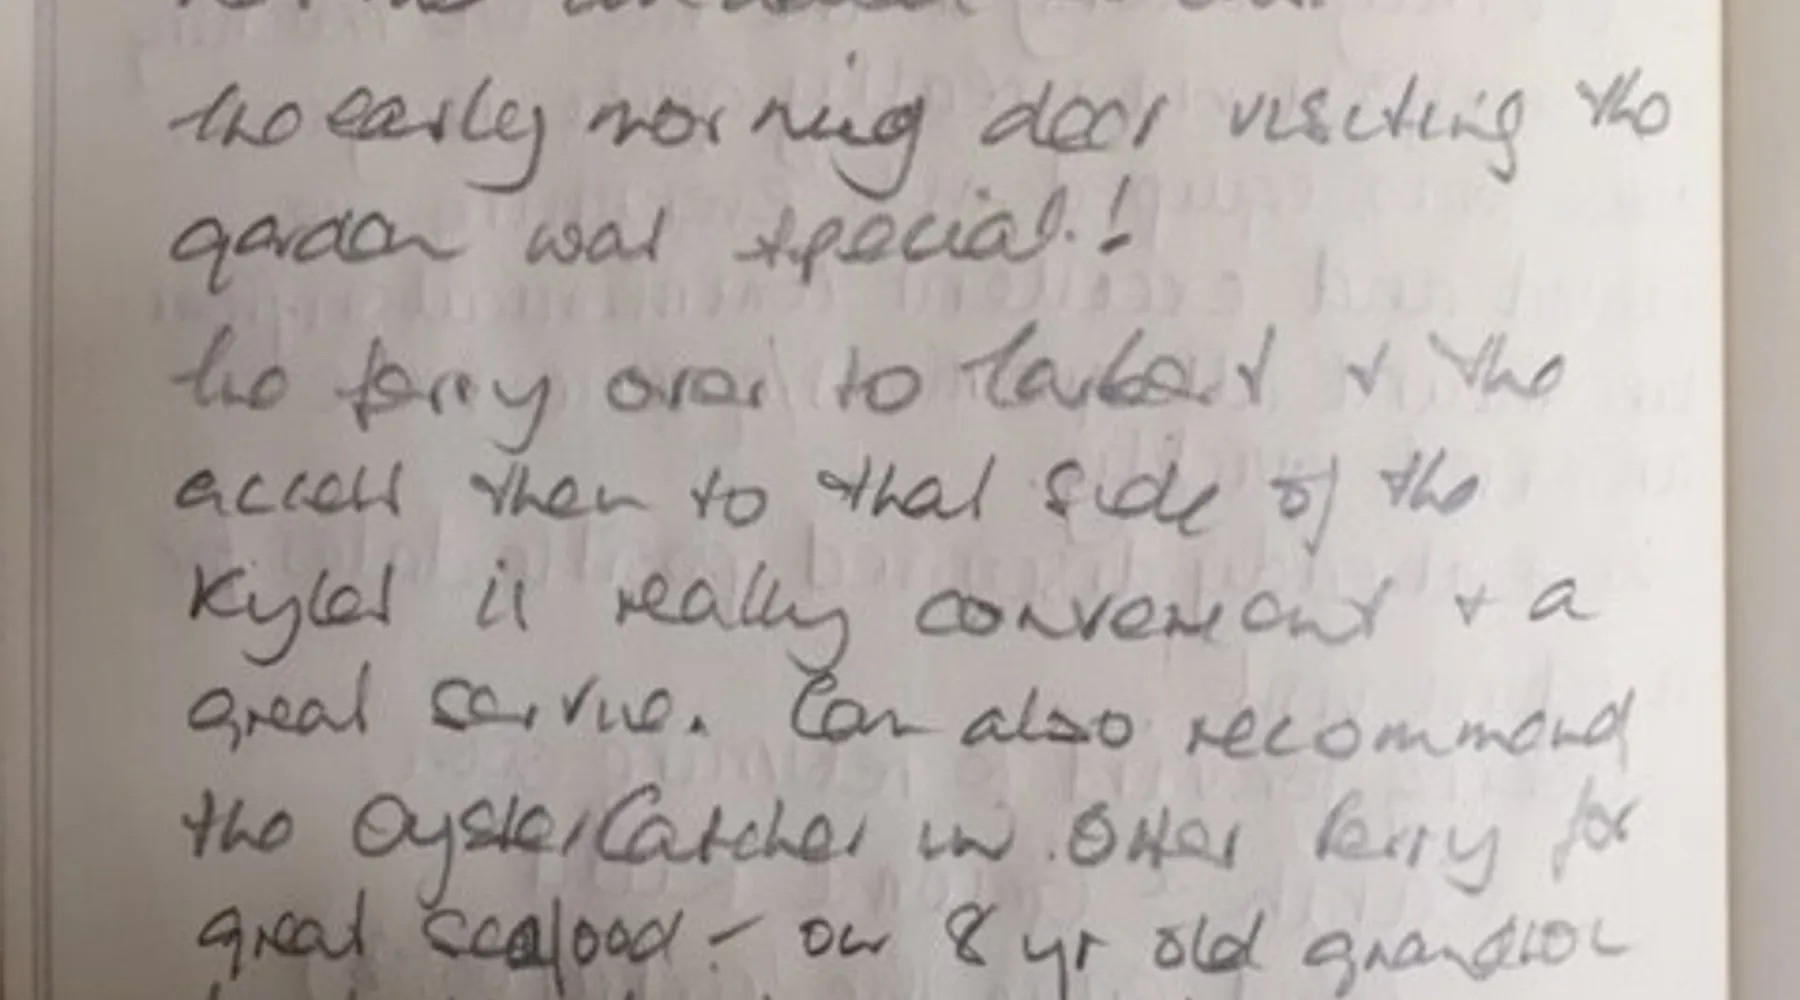 the early morning deer visiting the
garden was special!
The ferry over to Tarbert & the
access then to that side of the
Kyles is really convenient & a
great service. Can also recommend
the Oyster Catcher in Otter Ferry for
great seafood - our 8 yr old grandson